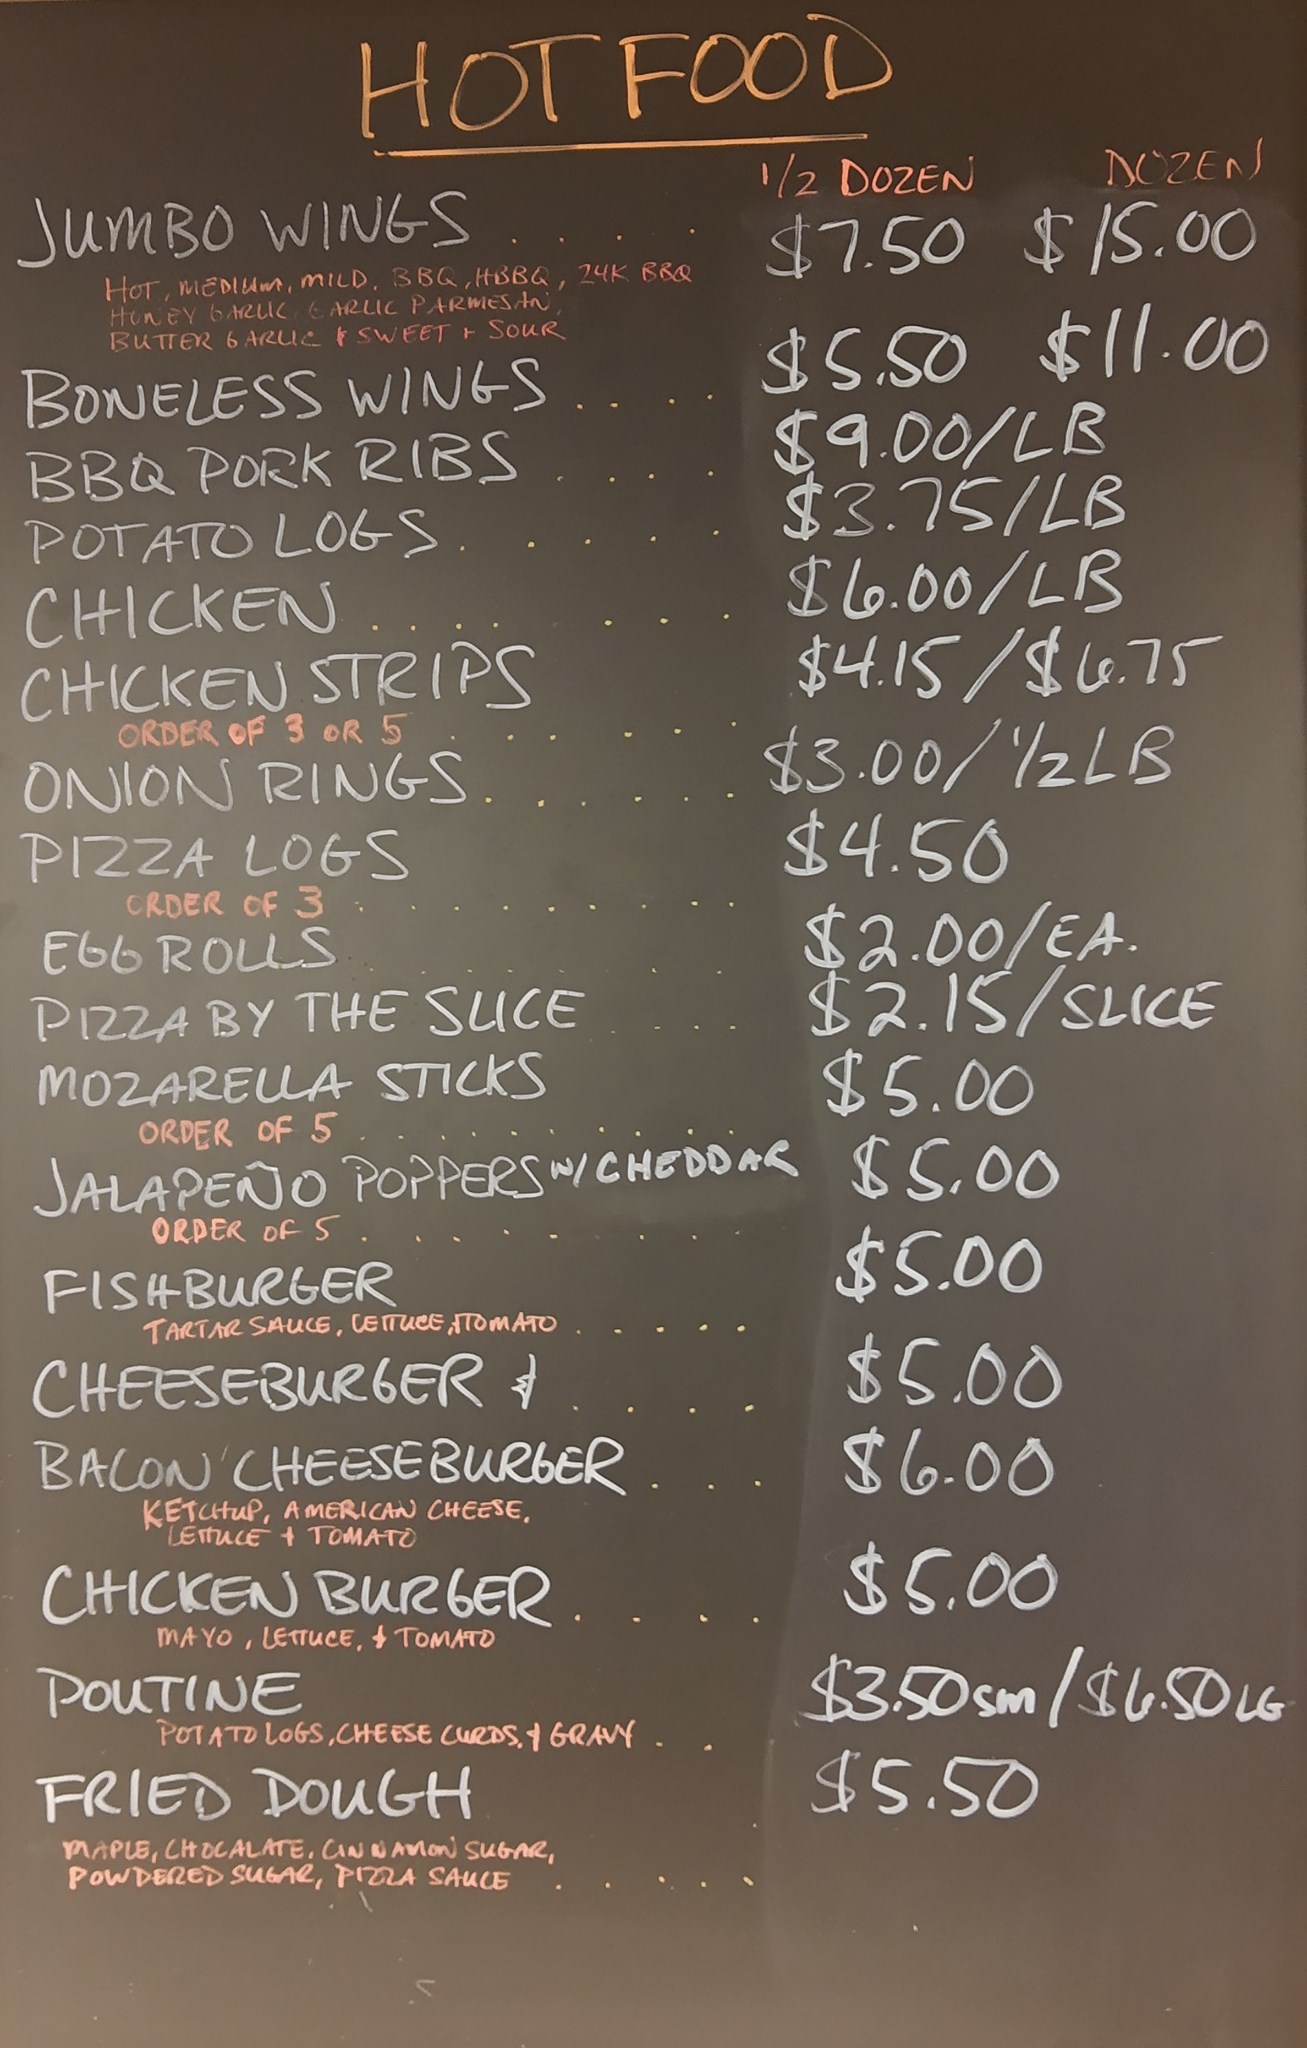 HOT FOOD
1/2 DOZEN DOZEN
JUMBO WINGS . . . . . $7.50 $15.00
HOT, MEDIUM, MILD, BBQ, HBBQ, 24K BBQ
HONEY GARLIC, GARLIC PARMESAN,
BUTTER GARLIC & SWEET + SOUR
BONELESS WINGS . . . . . $5.50 $11.00
BBQ PORK RIBS . . . . . $9.00/LB
POTATO LOGS . . . . . $3.75/LB
CHICKEN . . . . . . . $6.00/LB
CHICKEN STRIPS $4.15/$6.75
ORDER OF 3 OR 5 . . . . . .
ONION RINGS . . . . . . $3.00/1/2 LB
PIZZA LOGS $4.50
ORDER OF 3 . . . . . . . . .
EGG ROLLS . . . . . . . . $2.00/EA.
PIZZA BY THE SLICE . . . . $2.15/SLICE
MOZARELLA STICKS $5.00
ORDER OF 5 . . . . . . . . . .
JALAPEÑO POPPERS W/CHEDDAR $5.00
ORDER OF 5 . . . . . . . . .
FISHBURGER $5.00
TARTAR SAUCE, LETTUCE, & TOMATO . . . . .
CHEESEBURGER & . . . . $5.00
BACON CHEESEBURGER . . . $6.00
KETCHUP, AMERICAN CHEESE,
LETTUCE + TOMATO
CHICKEN BURGER . . . . . $5.00
MAYO, LETTUCE, & TOMATO
POUTINE $3.50 SM / $6.50 LG
POTATO LOGS, CHEESE CURDS, & GRAVY . . .
FRIED DOUGH $5.50
MAPLE, CHOCALATE, CINNAMON SUGAR,
POWDERED SUGAR, PIZZA SAUCE . . . . .